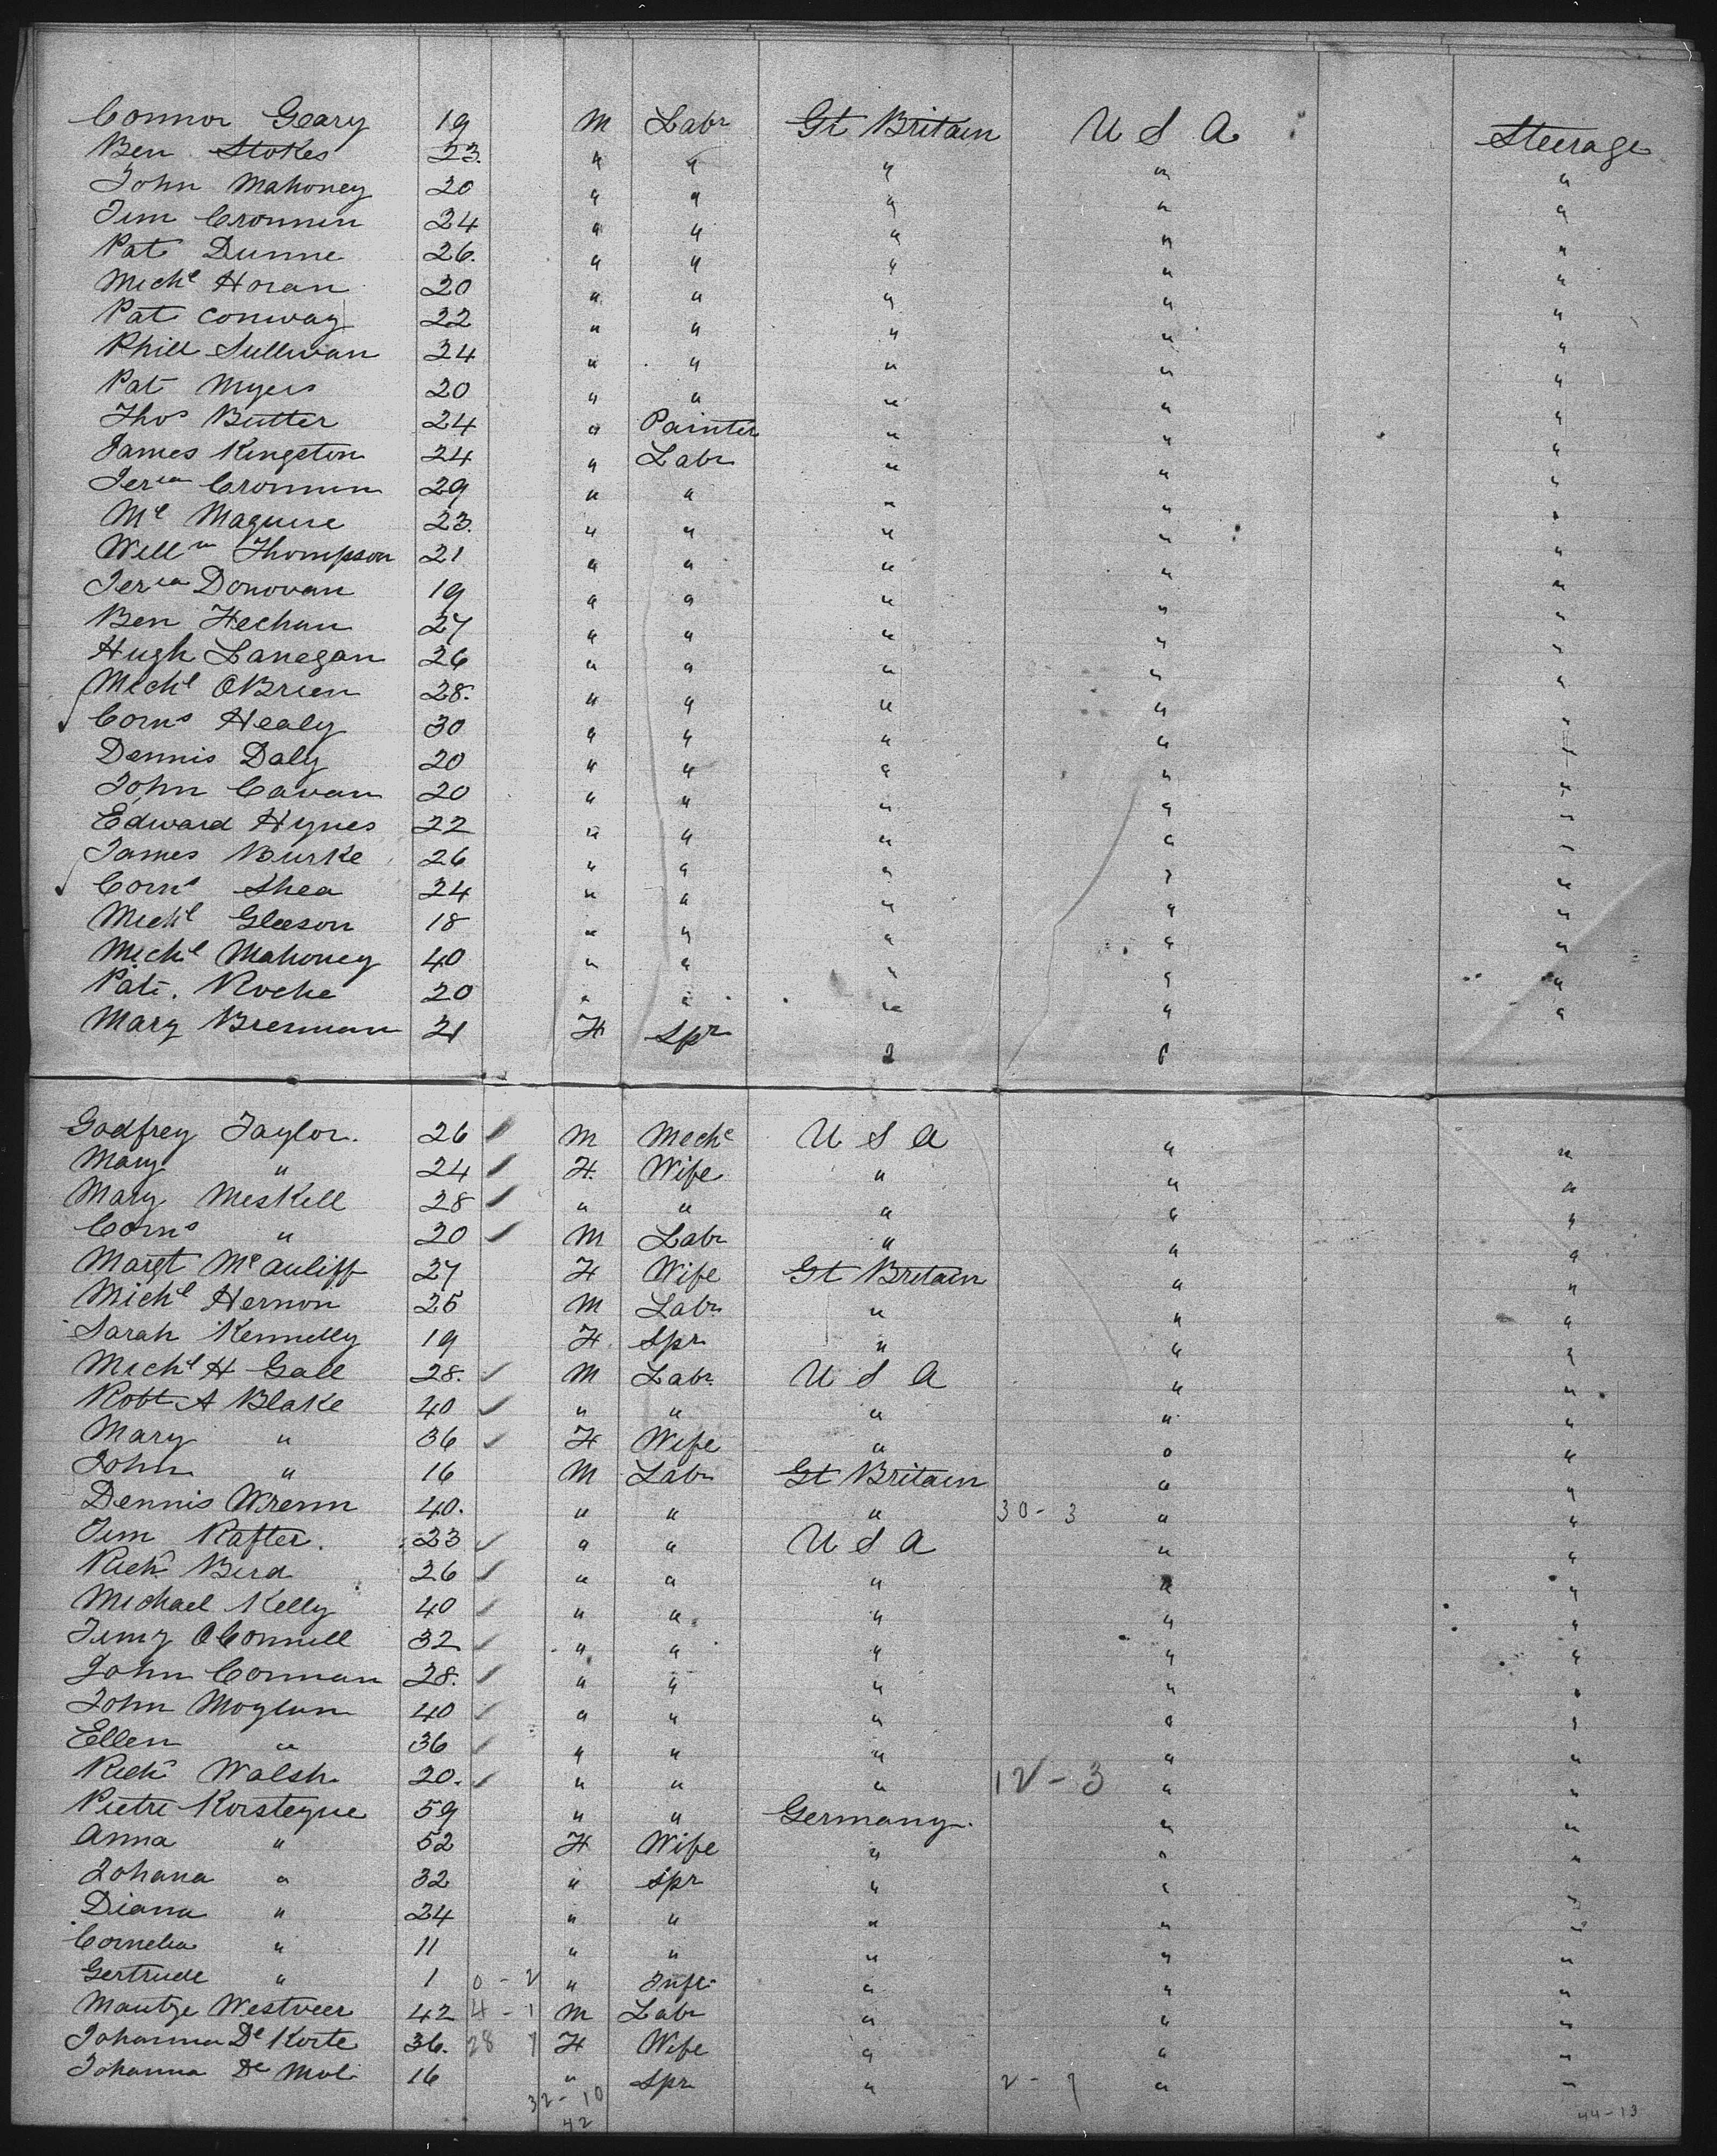 Connor Geary 19 M Labr Gt Britain U S A Steerage
Ben Stokes 23. " " " " "
John Mahoney 20 " " " " "
Jim Cronnin 24 " " " " "
Pat Dunne 26. " " " " "
Michl Horan 20 " " " " "
Pat Conway 22 " " " " "
Phill Sullivan 24 " " " " "
Pat Myers 20 " " " " "
Thos Butter 24 " Painter " " "
James Kingston 24 " Labr " " "
Jeria Cronnin 29 " " " " "
Ml Maguire 23. " " " " "
Willm Thompson 21 " " " " "
Jeria Donovan 19 " " " " "
Ben 27 " " " " "
Hugh Lanegan 26 " " " " "
Michl OBrien 28. " " " " "
Corns Healy 30 " " " " "
Dennis Daly 20 " " " " "
John Cavan 20 " " " " "
Edward Hynes 22 " " " " "
James Burke 26 " " " " "
Corns Shea 24 " " " " "
Michl Gleeson 18 " " " " "
Michl Mahoney 40 " " " " "
Pat. Roche 20 " " " " "
Mary Brennan 21 F Spr
Godfrey Taylor. 26 M Mechc U S A " "
Mary " 24 F. Wife " " "
Mary Meskell 28 " " " " "
Corns " 20 M Labr " " "
Margt McAuliff 27 F Wife Gt Britain " "
Michl Hernon 25 M Labr " " "
Sarah Kennelly 19 F. Spr " " "
Michl H Gall 28. M Labr U S A " "
Robt A Blake 40 " " " " "
Mary " 36 F Wife " " "
John " 16 M Labr Gt Britain " "
Dennis Wrenn 40. " " " 30 - 3 " "
Jim Rafter. 23 " " U S A " "
Richd Bird 26 " " " " "
Michael Kelly 40 " " " " "
Jimy OConnell 32 " " " " "
John Corman 28. " " " " "
John Moylan 40 " " " " "
Ellen " 36 " " " " "
Richd Walsh 20. " " " 12 - 3 " "
Pietre Korstegue 59 " " Germany. " "
Anna " 52 F Wife " " "
Johana " 32 " Spr " " "
Diana " 24 " " " " "
Cornelia " 11 " " " " "
Gertrude " 1 0 - 2 " Inft " " "
Westveer 42 4 - 1 M Labr " " "
Johanna De Korte 36. 28 7 F Wife " " "
Johanna De Mol 16 " Spr " 2 - 7 " "
32 - 10
42
44 - 13